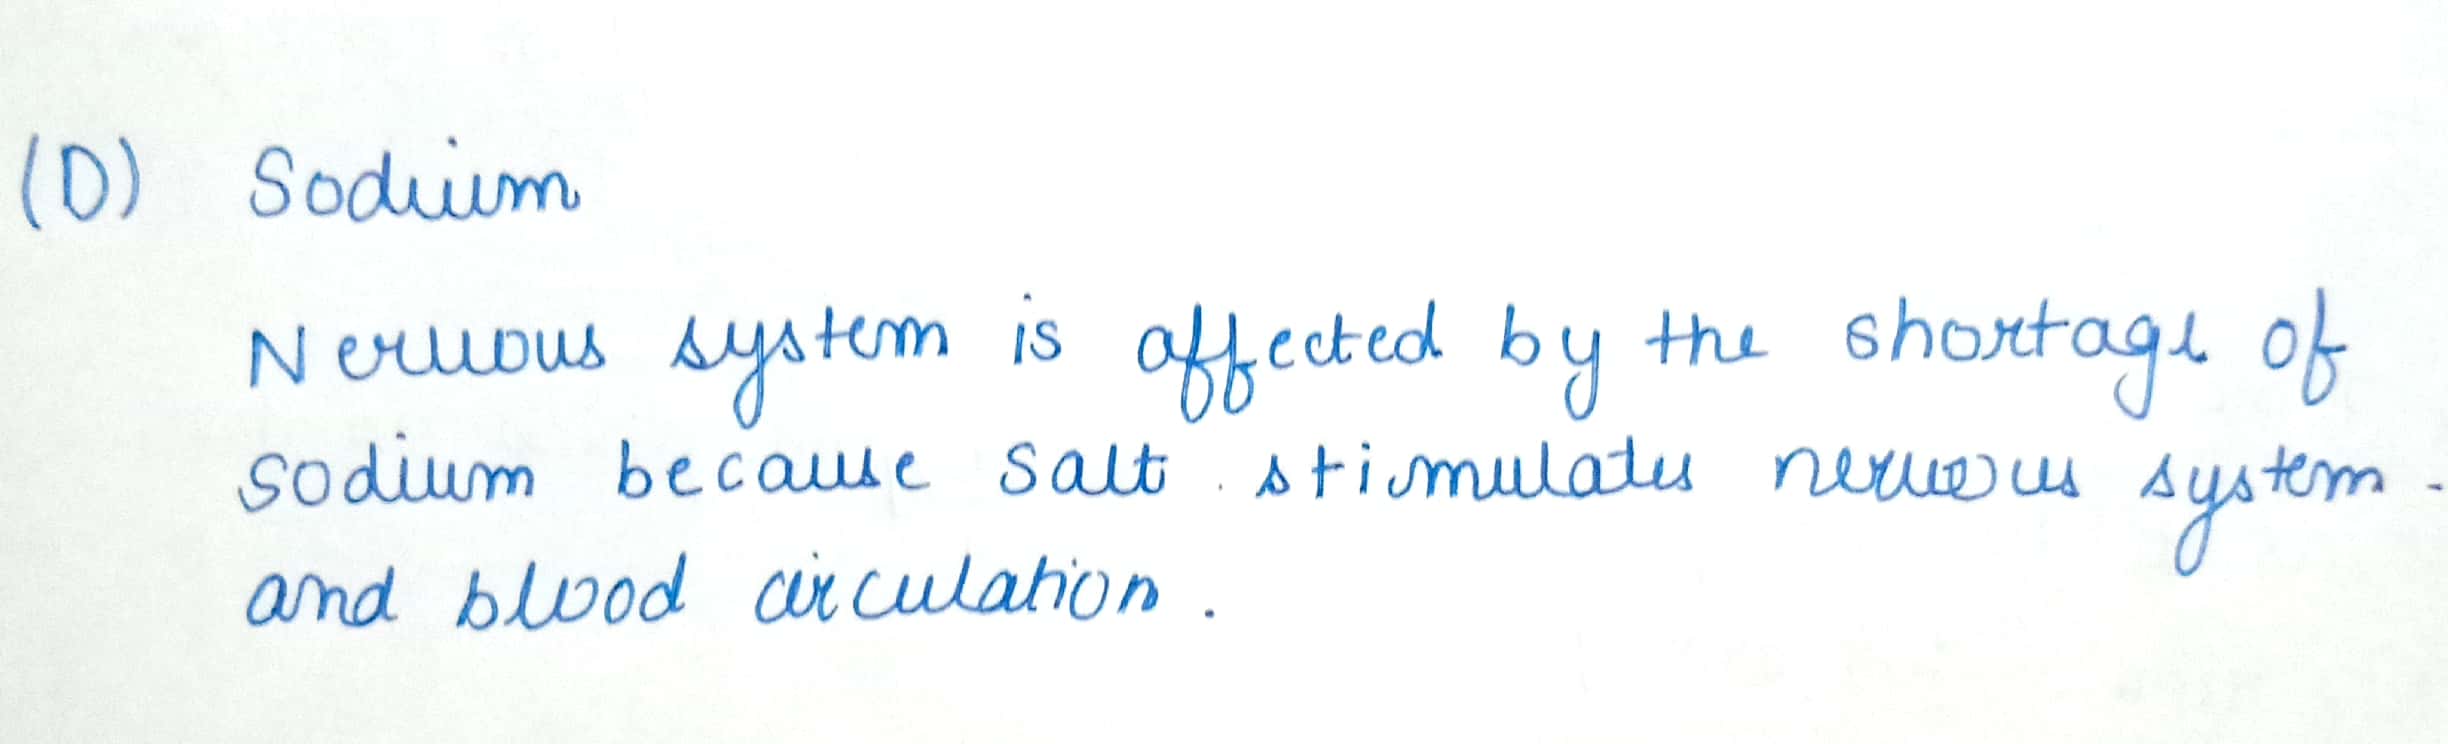 (D) Sodium
Nervous system is affected by the shortage of
sodium because salt stimulates nervous system
and blood circulation.